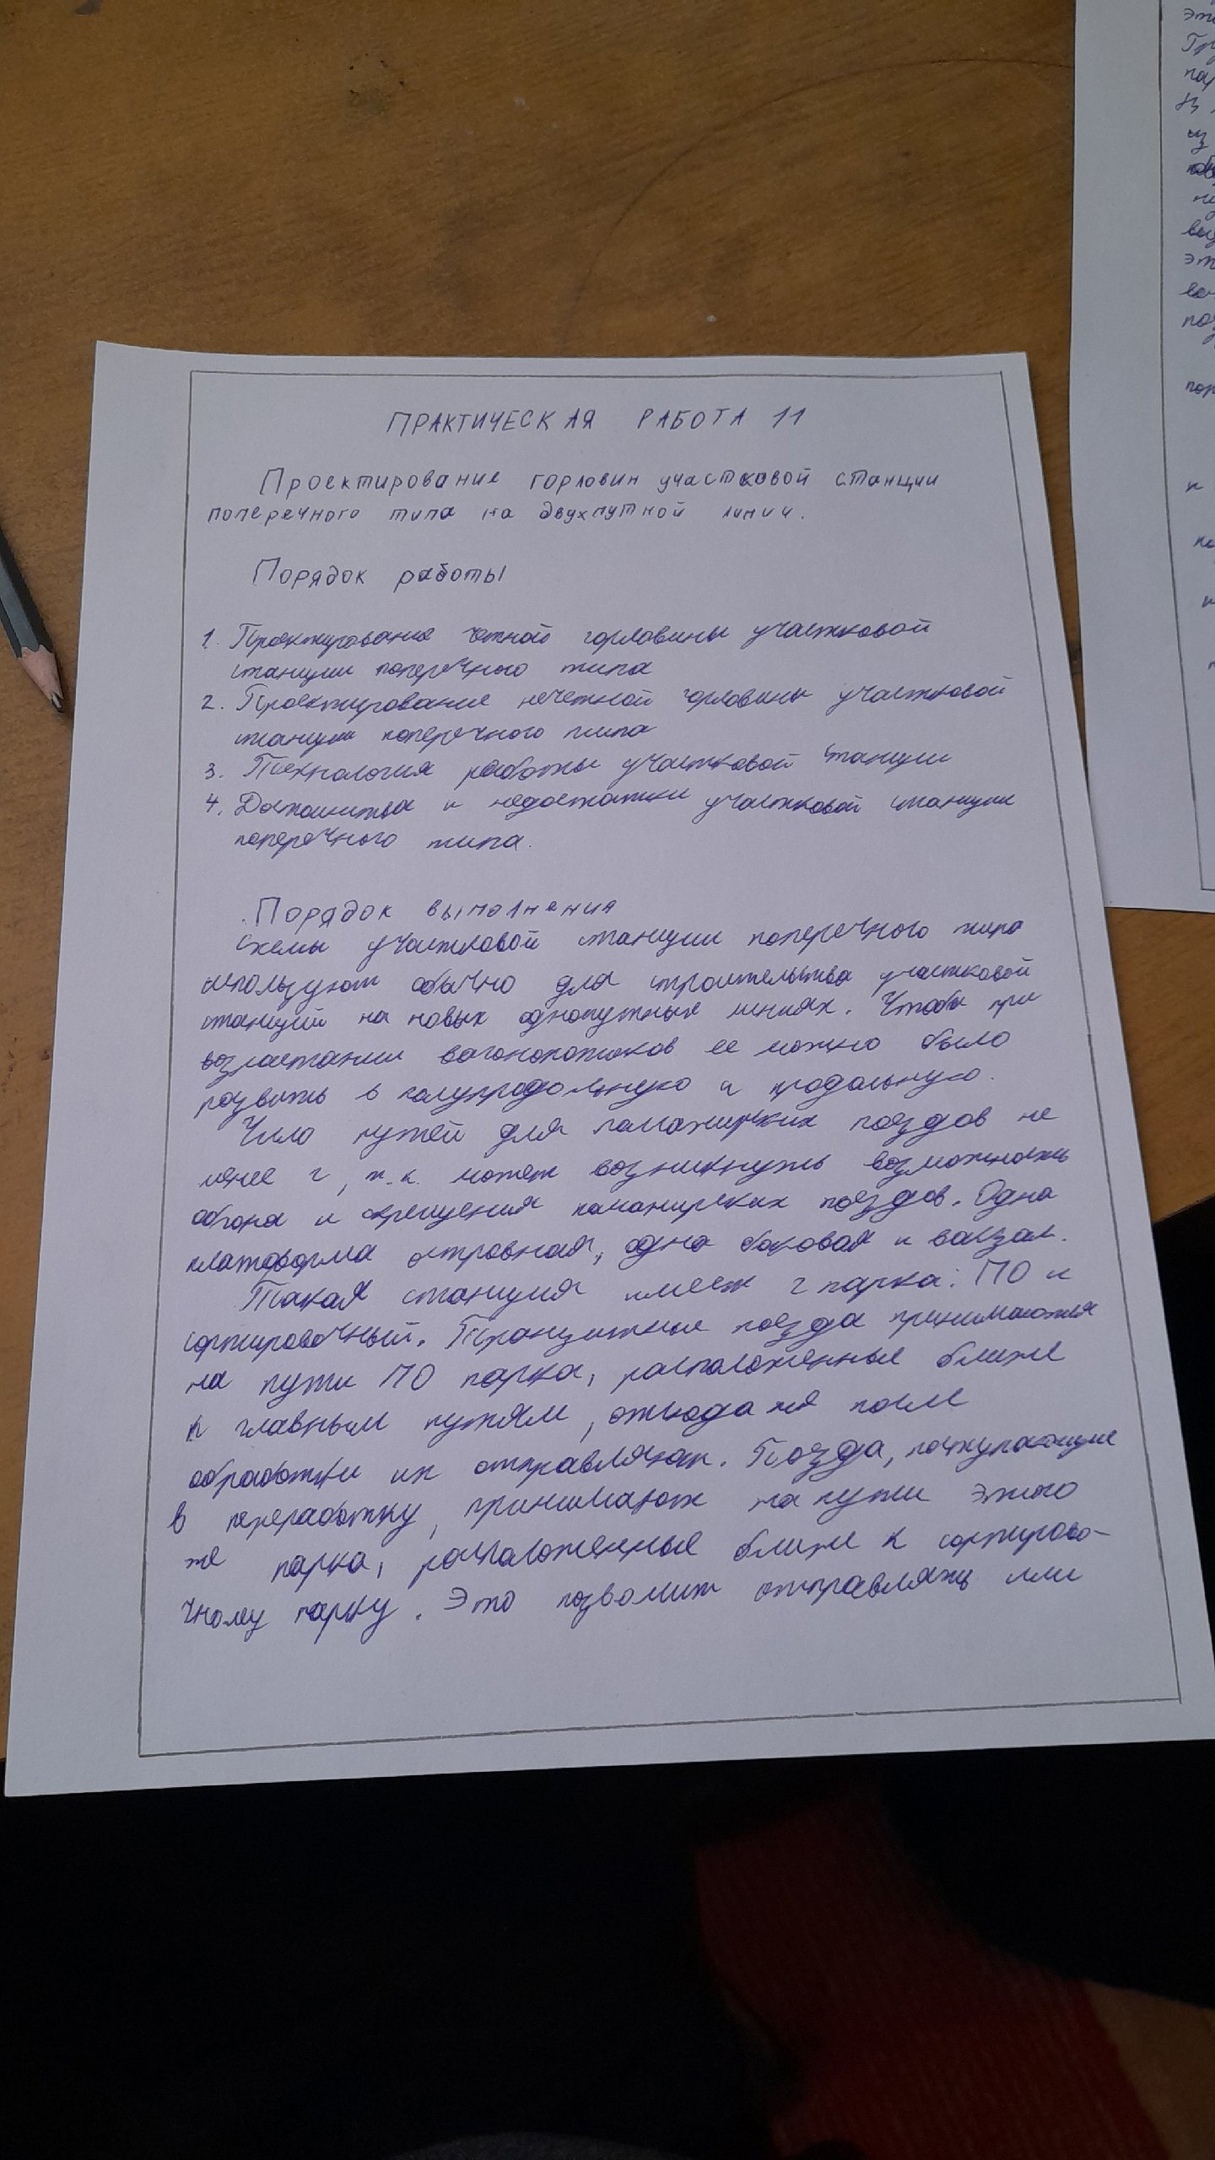 ПРАКТИЧЕСКАЯ РАБОТА 11
Проектирование горловин участковой станции
поперечного типа на двухпутной линии.
Порядок работы
1. Проектирование четной горловины участковой
станции поперечного типа
2. Проектирование нечетной горловины участковой
станции поперечного типа
3. Технология работы участковой станции
4. Достоинства и недостатки участковой станции
поперечного типа.
Порядок выполнения
Схемы участковой станции поперечного типа
используют обычно для строительства участковой
станций на новых однопутных линиях. Чтобы при
возрастании вагонопотоков ее можно было
развить в полупродольную и продольную.
Число путей для пассажирских поездов не
менее 2, т.к. может возникнуть возможность
обгона и скрещения пассажирских поездов. Одна
платформа островная, одна боковая и вокзал.
Такая станция имеет 2 парка: ПО и
сортировочный. Транзитные поезда принимаются
на пути ПО парка, расположенные ближе
к главным путям, откуда же после
обработки их отправляют. Поезда, поступающие
в переработку, принимают на пути этого
же парка, расположенные ближе к сортирово-
чному парку. Это позволит отправлять или